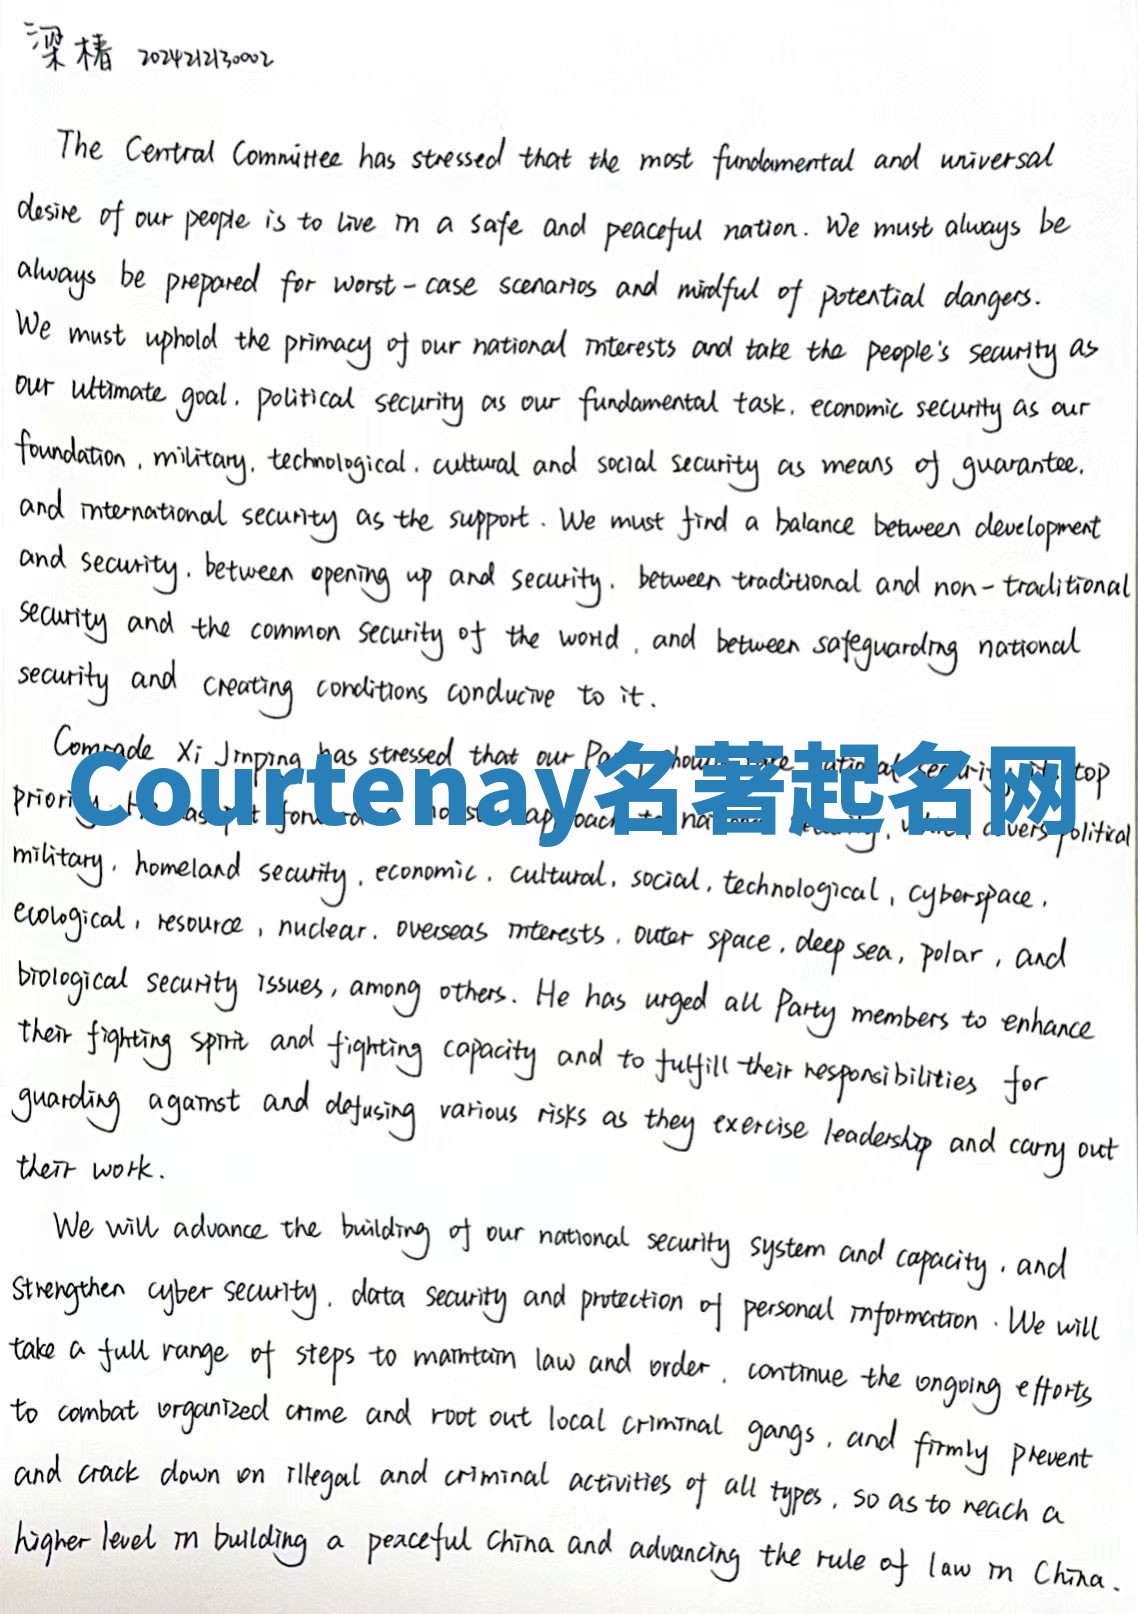 梁椿 2024212130002
The Central Committee has stressed that the most fundamental and universal
desire of our people is to live in a safe and peaceful nation. We must always be
always be prepared for worst-case scenarios and mindful of potential dangers.
We must uphold the primacy of our national interests and take the people's security as
our ultimate goal, political security as our fundamental task, economic security as our
foundation, military, technological, cultural and social security as means of guarantee,
and international security as the support. We must find a balance between development
and security, between opening up and security, between traditional and non-traditional
security and the common security of the world, and between safeguarding national
security and creating conditions conducive to it.
Comrade Xi Jinping has stressed that our national security top
Courtenay名著起名网
approach covers political
military, homeland security, economic, cultural, social, technological, cyberspace,
ecological, resource, nuclear, overseas interests, outer space, deep sea, polar, and
biological security issues, among others. He has urged all Party members to enhance
their fighting spirit and fighting capacity and to fulfill their responsibilities for
guarding against and defusing various risks as they exercise leadership and carry out
their work.
We will advance the building of our national security system and capacity, and
strengthen cyber security, data security and protection of personal information. We will
take a full range of steps to maintain law and order, continue the ongoing efforts
to combat organized crime and root out local criminal gangs, and firmly prevent
and crack down on illegal and criminal activities of all types, so as to reach a
higher level in building a peaceful China and advancing the rule of law in China.